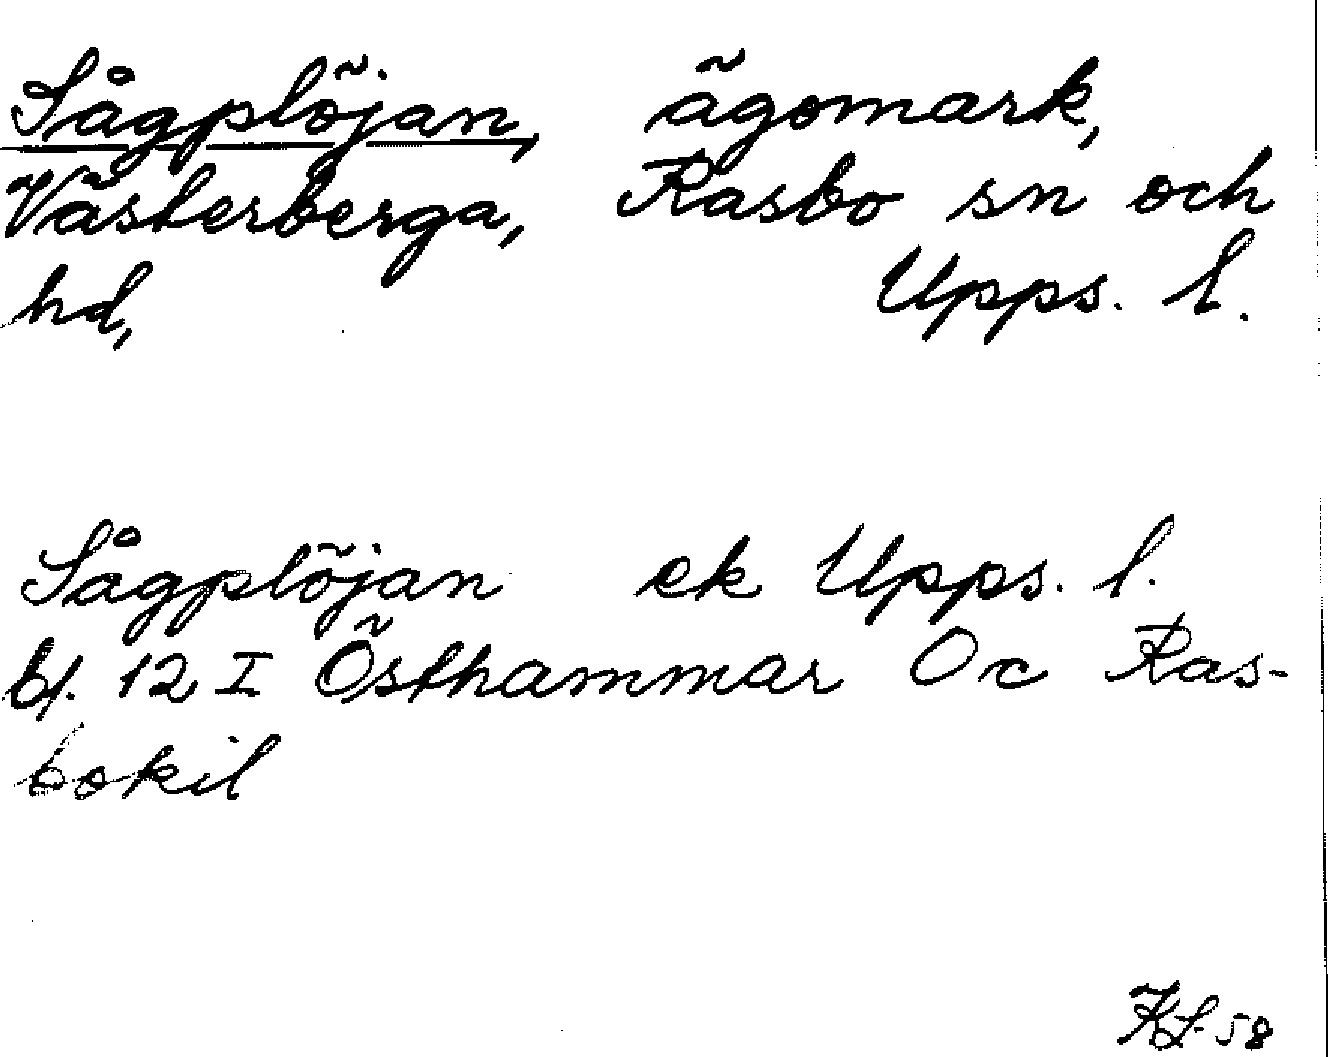 Sågplöjan, ägomark,
Västerberga, Rasbo sn och
hd, Upps. l.
Sågplöjan ek Upps. l.
bl. 12 I Östhammar Oc Ras-
bokil
KL-58